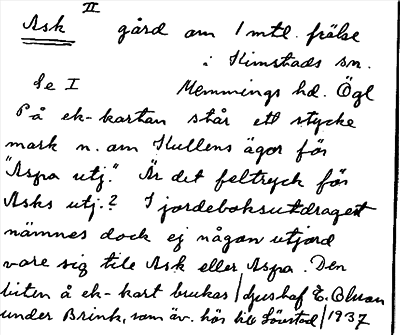 Ask II gård om 1 mtl. frälse
i Kimstads sn.
Se I Memmings hd. Ögl
På ek-kartan står ett stycke
mark n. om Kullens ägor för
"Aspa utj." Är det feltryck för
Asks utj.? I jordeboksutdraget
nämnes dock ej någon utjord
vare sig till Ask eller Aspa. Den
biten å ek-kart brukas / djushaf E. Olsson
under Brink, som äv. hör till Löfstad / 1937